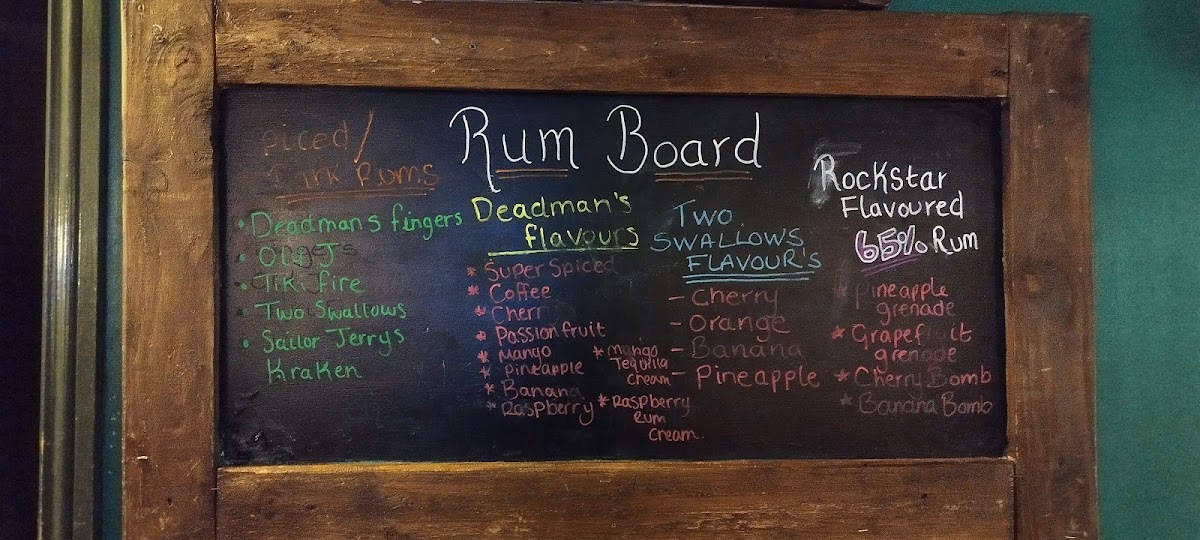 Rum Board
Spiced/
Dark Rums
• Deadmans fingers
• OLD J
• Tiki fire
• Two Swallows
• Sailor Jerrys
Kraken
Deadman's
flavours
* Super Spiced
* Coffee
* Cherr
* Passionfruit
* Mango
* pineapple
* Banana
* Raspberry
* mango
Tequila
cream
* Raspberry
Rum
cream.
Two
SWALLOWS
FLAVOUR's
- Cherry
- Orange
- Banana
- Pineapple
RockStar
Flavoured
65% Rum
* Pineapple
grenade
* Grapef it
grenade
* Cherry Bomb
* Banana Bomb